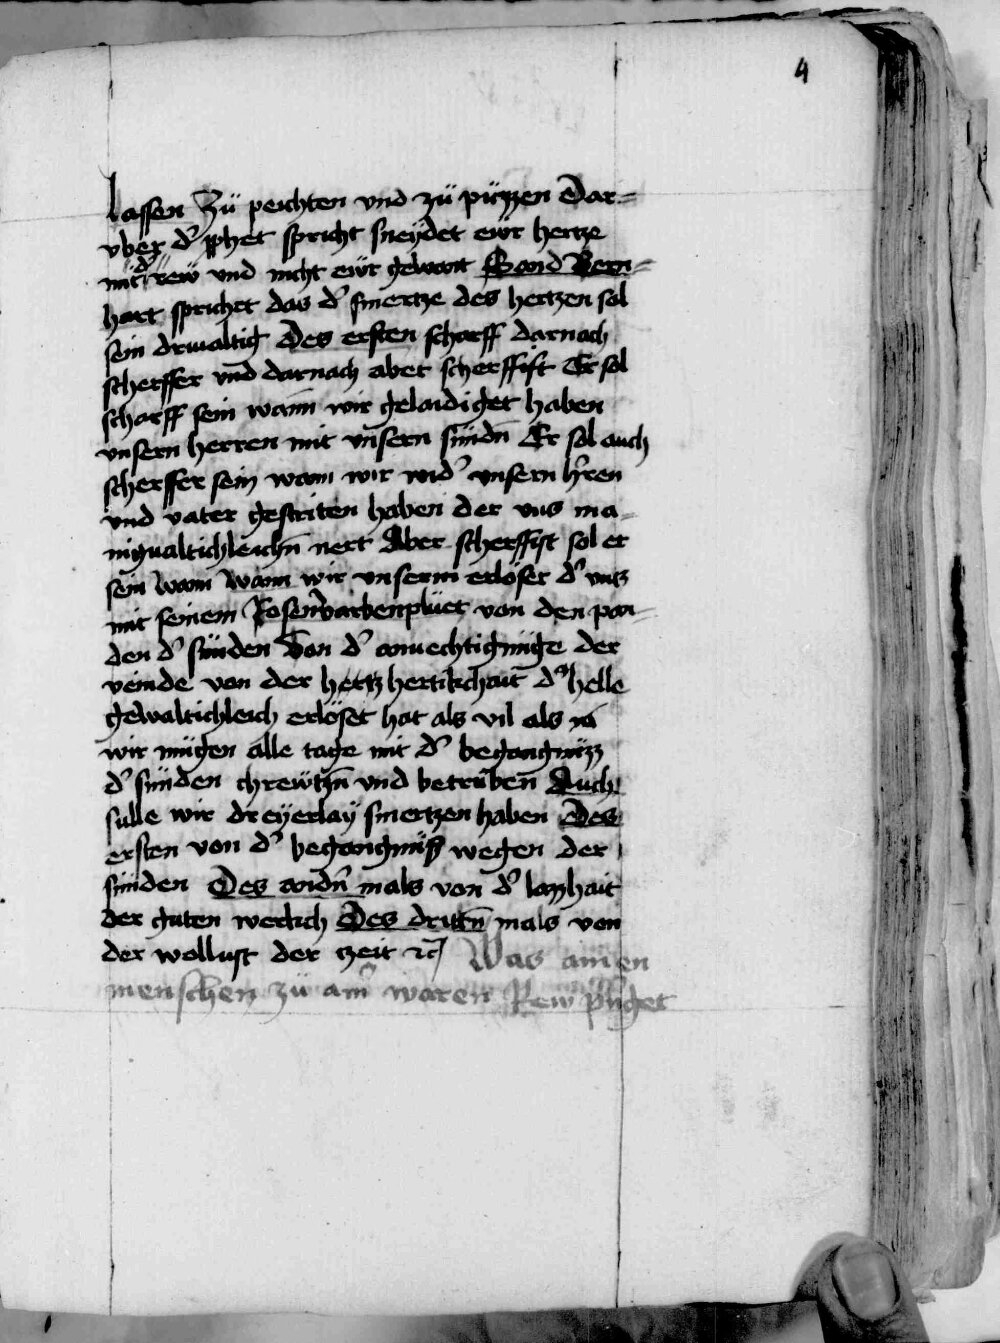 4
lassen Zü peichten vnd zü püzzen Dar=
vber d' pphet spricht sneydet ewr hertze
mit d' rew vnd nicht ewr gewant Sand Bern=
hart sprichet das d' smertze des hertzen sol
sein driualtig Des ersten scharff darnach
scherffer vnd darnach aber scherffist Er sol
scharff sein wann wir gelaidiget haben
vnsern herren mit vnsern sündn̄ Er sol auch
scherffer sein wann wir wid' vnsern h'ren
vnd vater gestriten haben der vns ma-
nigualtichleichn̄ nert Aber scherffist sol er
sein wann wann wir vnserm erlöser d' vns
mit seinem Rosenvarben plüet von den pan-
den d' sünden Von d' anuechtigunge der
veinde von der hertikchait d' helle
gewaltichleich erlöset hat als vil als
wir mügen alle tage mit d' begangnüzz
d' sünden chrewtzn̄ vnd betrüben̄ Auch
sulle wir dreyerlay smertzen haben Des
ersten von d' begangnüß wegen der
sünden Des andn̄ mals von d' lazzhait
der guten werkch Des drittn̄ mals von
der wollust der zeit ꝛc̄ Was ainen
menschen zü am̄ waren Rew pringet